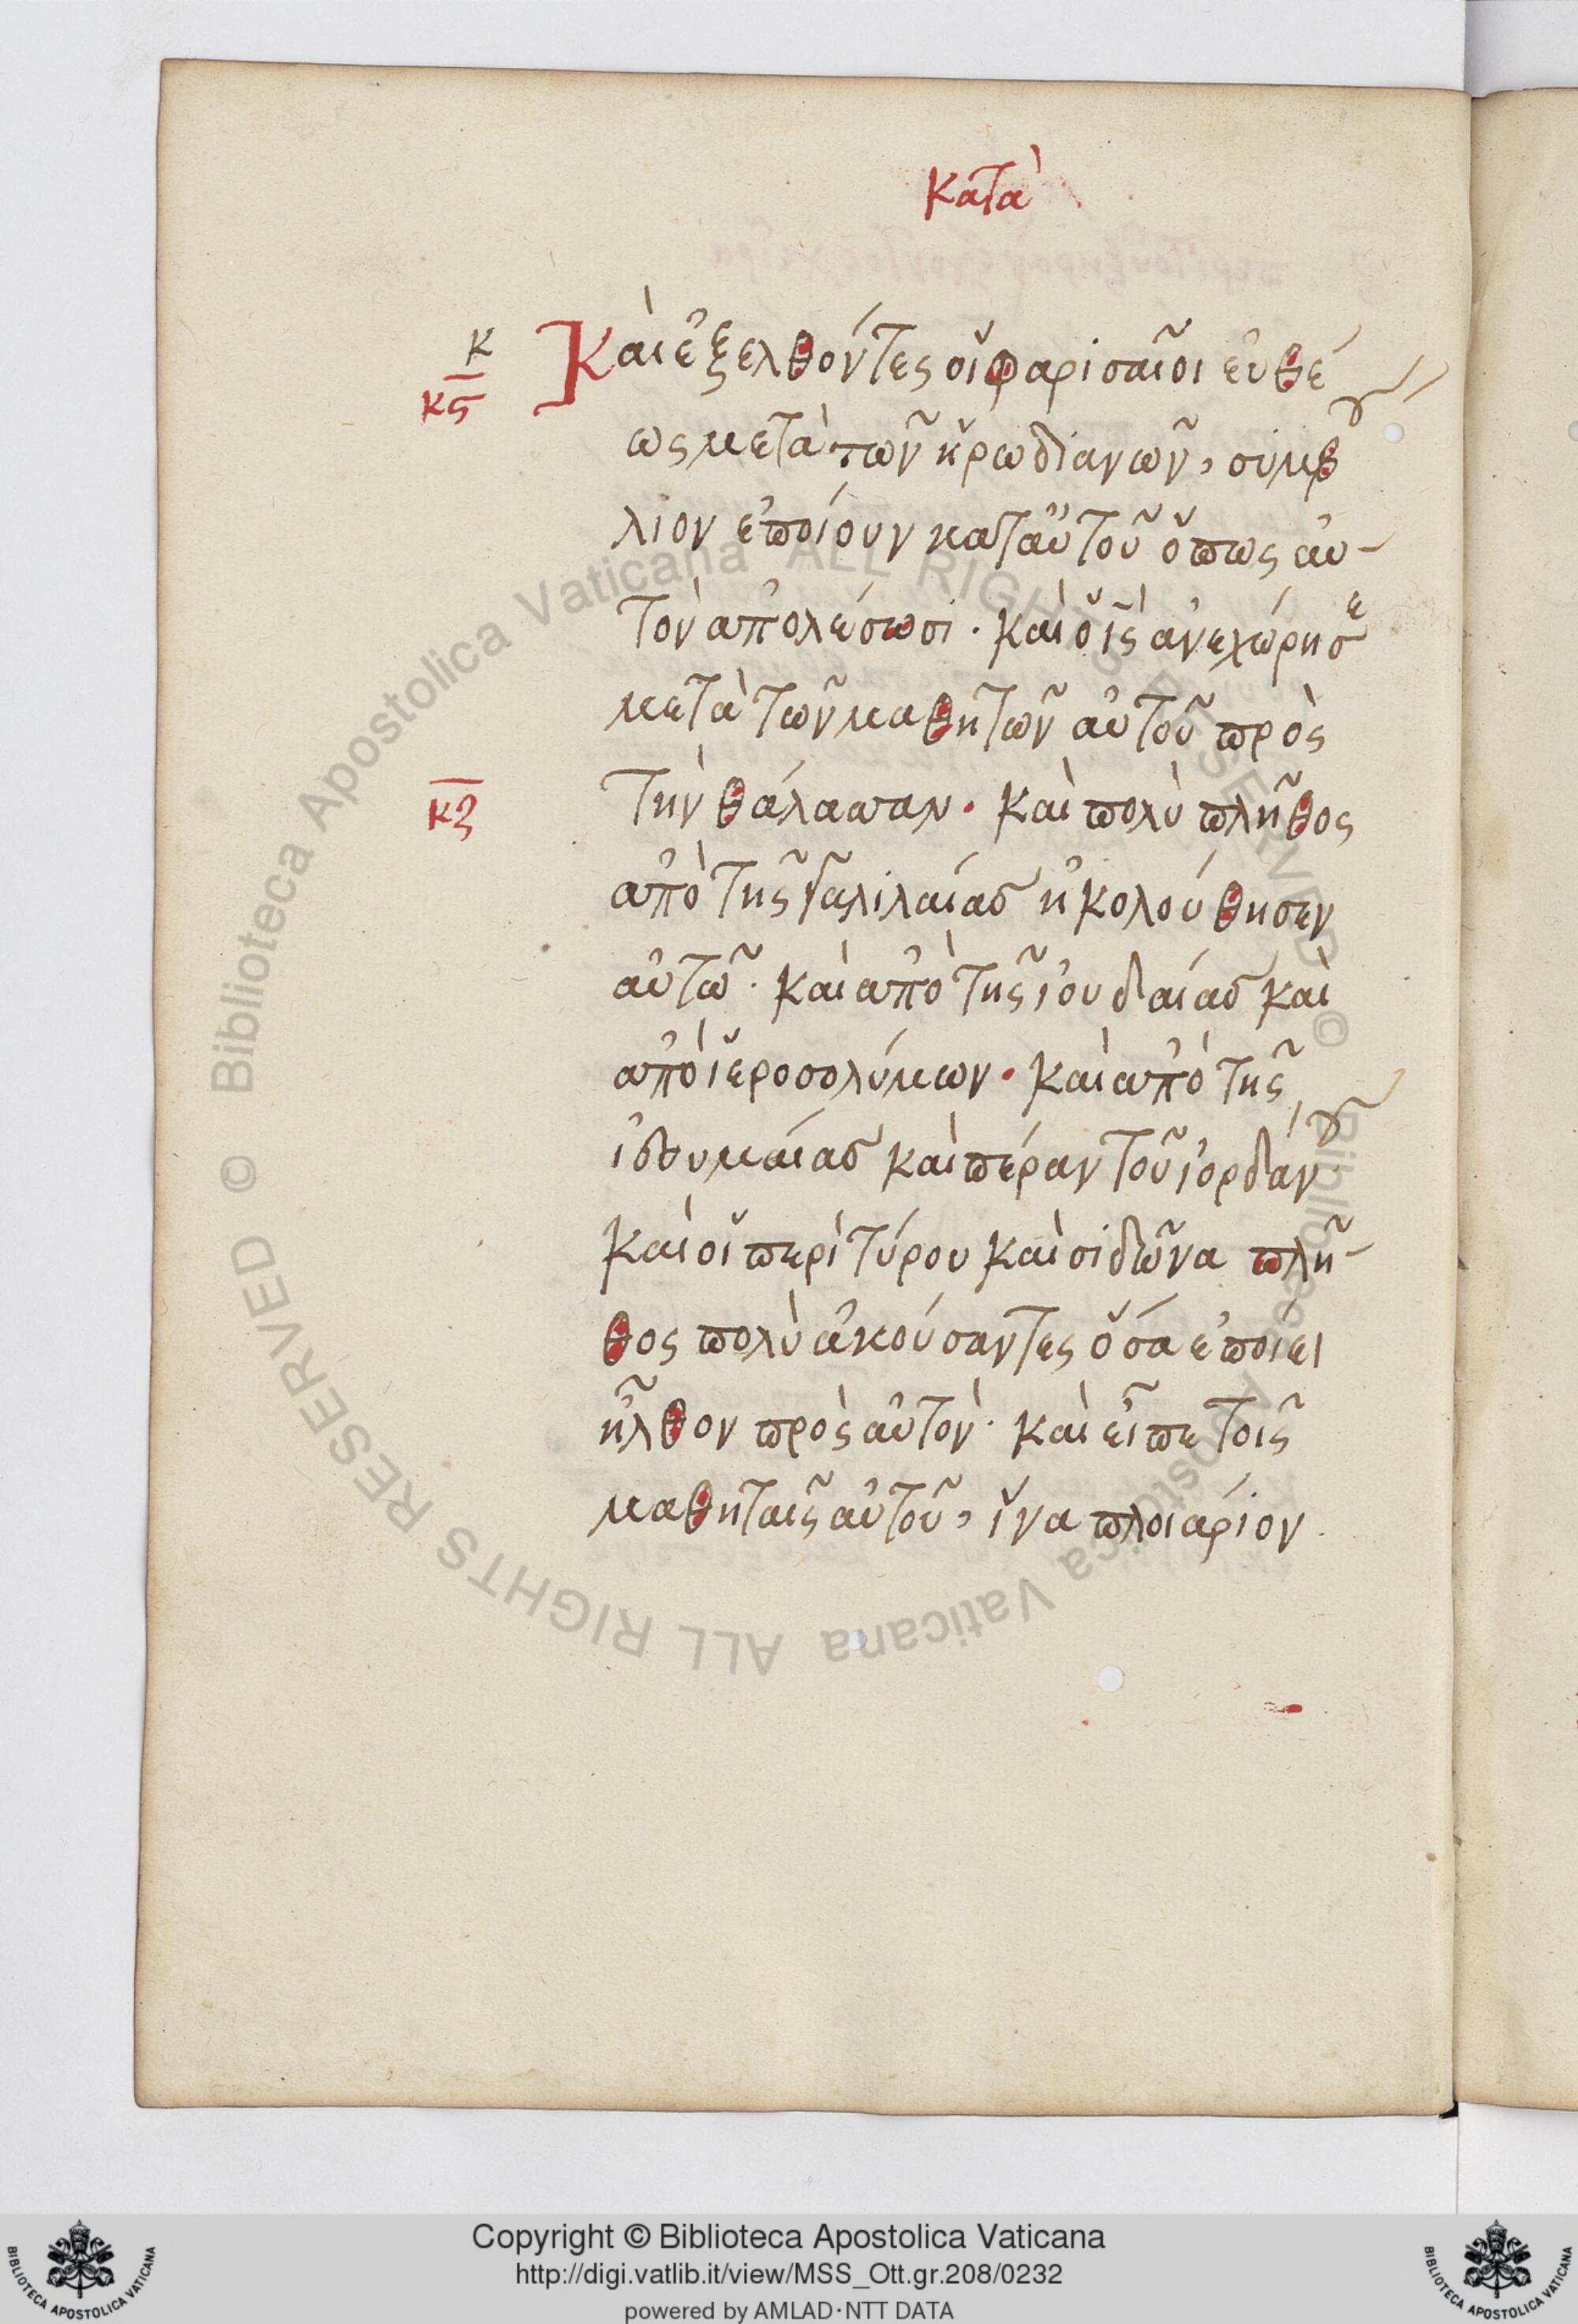 Κατὰ
κ
κϛ
Καὶ ἐξελθόντες οἱ φαρισαῖοι εὐθέ
ως μετὰ τῶν ἡρωδιανῶν, συμβού
λιον ἐποίουν κατ' αὐτοῦ ὅπως αὐ-
τὸν ἀπολέσωσι. καὶ ὁ ις ἀνεχώρησε
μετὰ τῶν μαθητῶν αὐτοῦ πρὸς
κζ
τὴν θάλασσαν. καὶ πολὺ πλῆθος
ἀπὸ τῆς γαλιλαίας ἠκολούθησεν
αὐτῶ. καὶ ἀπὸ τῆς ἰουδαίας καὶ
ἀπὸ ἱεροσολύμων. καὶ ἀπὸ τῆς
ἰδουμαίας καὶ πέραν τοῦ ἰορδάνου
καὶ οἱ περὶ τύρου καὶ σιδῶνα πλῆ-
θος πολὺ ἀκούσαντες ὅσα ἐποίει
ἦλθον πρὸς αὐτόν. καὶ εἶπε τοῖς
μαθηταῖς αὐτοῦ, ἵνα πλοιάριον
© Biblioteca Apostolica Vaticana ALL RIGHTS RESERVED © Biblioteca Apostolica Vaticana ALL RIGHTS RESERVED
Copyright © Biblioteca Apostolica Vaticana
http://digi.vatlib.it/view/MSS_Ott.gr.208/0232
powered by AMLAD·NTT DATA
BIBLIOTECA APOSTOLICA VATICANA
BIBLIOTECA APOSTOLICA VATICANA